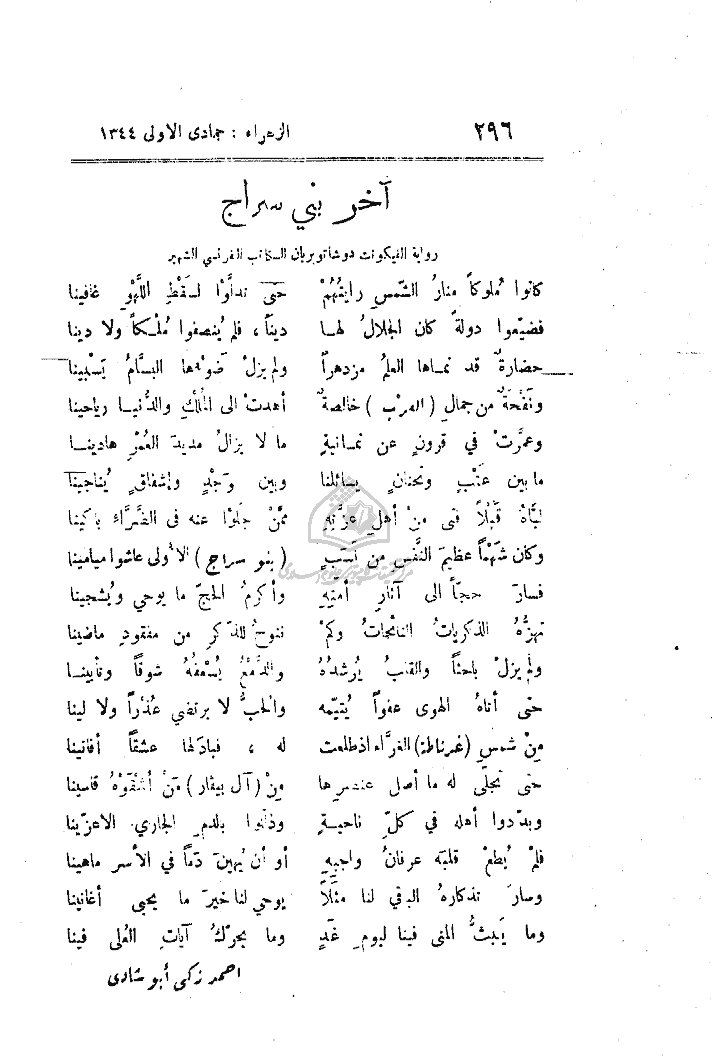 ٢٩٦ الزهراء : جمادى الاولى ١٣٤٤
آخر بني سراج
رواية الفيكونت دوشاتوبريان الكاتب الفرنسي الشهير
كانوا مُلوكاً منارُ الشّمسِ رايتُهُمْ حتى تدلَّوْا لسَقْطِ اللَّهْوِ غافينا
فضيّعوا دولةً كان الجلالُ لها ديناً ، فلم يُنصفوا مُلكاً ولا دينا
حضارةٌ قد نماها العلمُ مزدهراً ولم يزلْ ضوْءها البسَّامُ يَسْبينا
ونَفْحَةٌ من جمالِ ( العرْبِ ) خالصةٌ أهدتْ الى المُلكِ والدُّنيا رياحينا
وعمَّرتْ في قرونٍ عن ثمانيةٍ ما لا يزالُ مديدَ العُمْرِ هادينا
ما بين عَتْبٍ وتحنانٍ يسائلنا وبين وَجْدٍ وإشفاقٍ يُناجينا
لبَّاهُ قَبْلاً فتى منْ أهلِ عزّتهِ ممَّنْ جلَوْا عنه في الضرَّاء باكينا
وكان شهْماً عظيمَ النَّفْسِ من نَسَبٍ ( بنو سراج ) الأولى عاشوا ميامينا
فسارَ حجّاً الى آثارِ أمّتهِ وأكرمُ الحجّ ما يوحي ويُشجينا
تهزُّهُ الذكرياتُ النائحاتُ وكمْ ننوحُ للذكرِ من مفقودِ ماضينا
ولم يزلْ باحثاً والقلبُ يُرشدُهُ والدَّمعُ يُسْعفُهُ شوقاً وتأبينا
حتى أتاهُ الهوى عفواً يُتيّمه والحبُّ لا يرتضي عُذراً ولا لينا
مِنْ شمسِ (غرناطةَ) الغرَّاء اذطلعت له ، فبادلها عشقاً أفانينا
حتى تجلّى له ما أصل عنصرها مِنْ ( آل بيفار ) مَنْ أشْقَوْهُ قاسينا
وبدَّدوا أهله في كلّ ناحيةٍ وذلّوا بالدمِ الجاري الاعزّينا
فلمْ يُطعْ قلبَه عرفانُ واجبهِ أو أن يُهينَ دَماً في الأسر ماهينا
وسارَ تذكارُه الباقي لنا مثَلاً يوحي لنا خيرَ ما يحيى أغانينا
وما يَبثُّ المنى فينا ليومِ غَدٍ وما يحرّكُ آياتِ العُلى فينا
احمد زكي أبو شادي